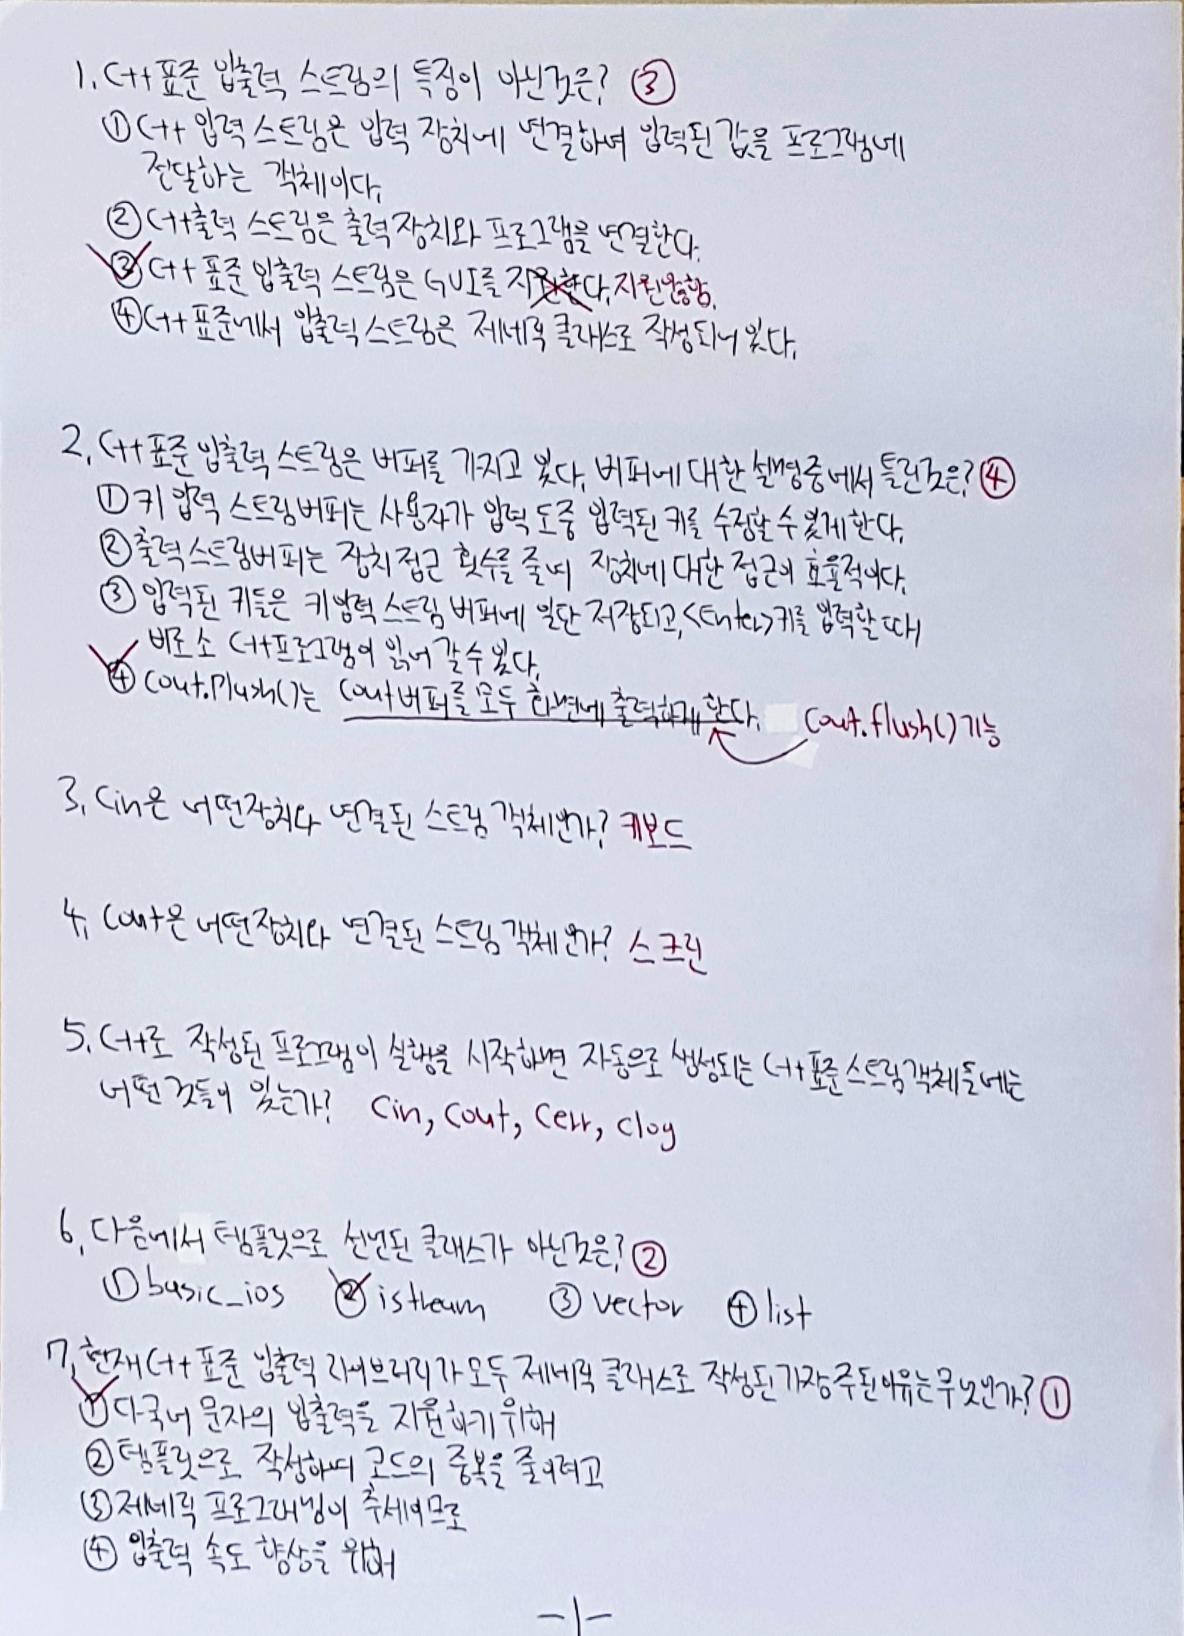 1. C++ 표준 입출력 스트림의 특징이 아닌것은? ③
① C++ 입력 스트림은 입력 장치에 연결하여 입력된 값을 프로그램에
전달하는 객체이다.
② C++출력 스트림은 출력장치와 프로그램을 연결한다.
③ C++ 표준 입출력 스트림은 GUI를 지원한다. 지원않함.
④ C++ 표준에서 입출력 스트림은 제네릭 클래스로 작성되어 있다.
2. C++ 표준 입출력 스트림은 버퍼를 가지고 있다. 버퍼에 대한 설명중에서 틀린것은? ④
① 키 입력 스트림버퍼는 사용자가 입력 도중 입력된 키를 수정할 수 있게 한다.
② 출력스트림버퍼는 장치 접근 횟수를 줄여 장치에 대한 접근이 효율적이다.
③ 입력된 키들은 키입력 스트림 버퍼에 일단 저장되고, <Enter>키를 입력할 때
비로소 C++프로그램이 읽어 갈 수 있다.
④ cout.Plush()는 cout버퍼를 모두 화면에 출력하게 한다. cout.flush()기능
3. Cin은 어떤장치와 연결된 스트림 객체인가? 키보드
4. Cout은 어떤장치와 연결된 스트림 객체인가? 스크린
5. C++로 작성된 프로그램이 실행을 시작하면 자동으로 생성되는 C++표준스트림객체들에는
어떤 것들이 있는가? Cin, Cout, Cerr, Clog
6. 다음에서 템플릿으로 선언된 클래스가 아닌것은? ②
① basic_ios ② istream ③ vector ④ list
7. 현재 C++ 표준 입출력 라이브러리가 모두 제네릭 클래스로 작성된 가장 주된 이유는 무엇인가? ①
① 다국어 문자의 입출력을 지원하기 위해
② 템플릿으로 작성하여 코드의 중복을 줄이려고
③ 제네릭 프로그래밍이 추세이므로
④ 입출력 속도 향상을 위해
-1-